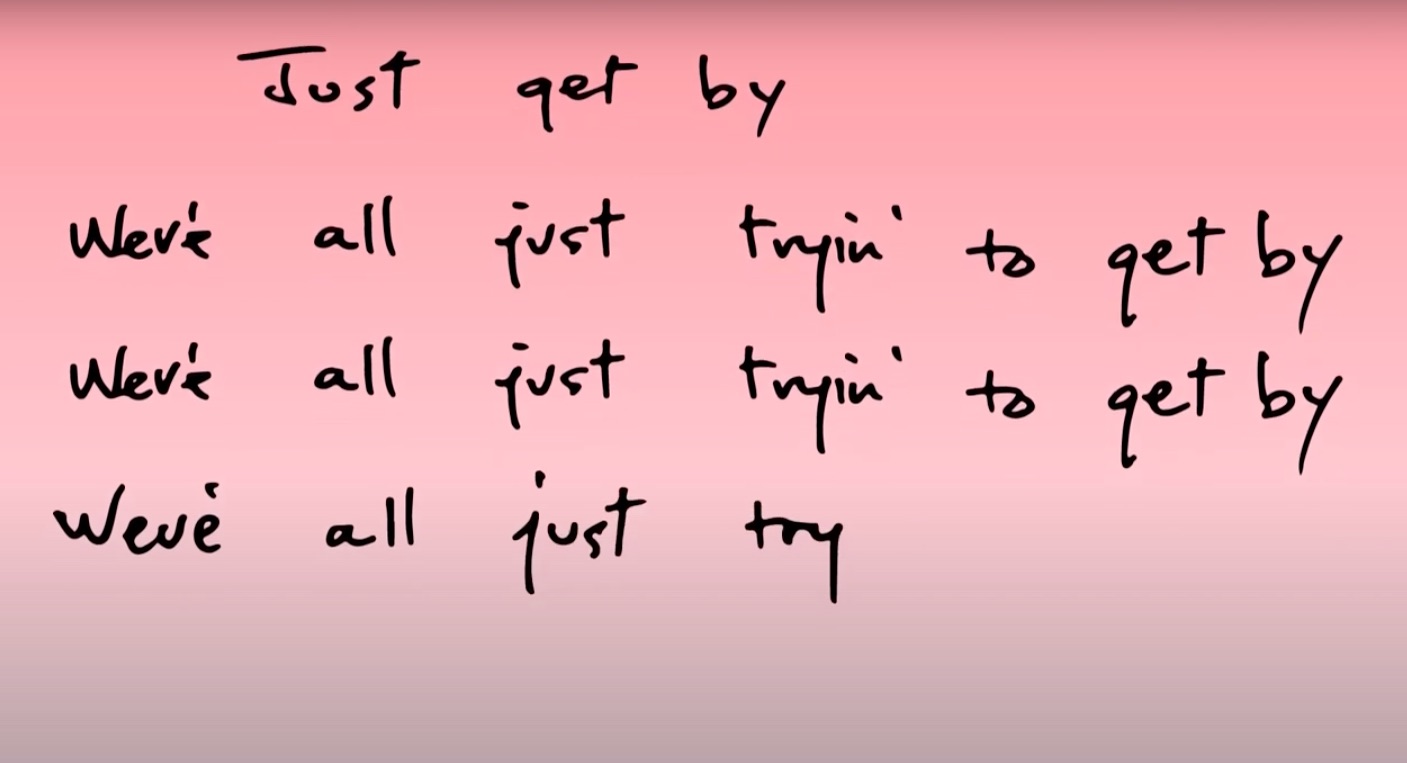 Just get by
We're all just tryin' to get by
We're all just tryin' to get by
We're all just try